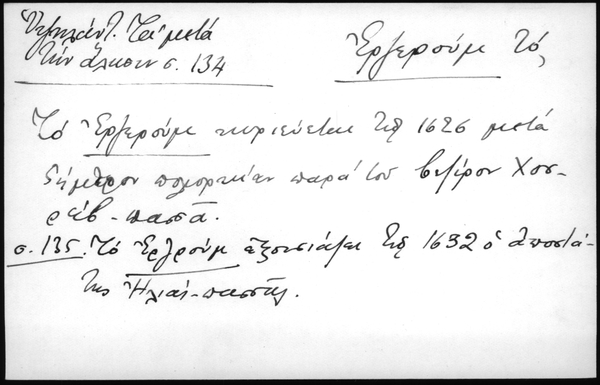 Τά μετά
τήν ἅλωσιν σ. 134
Ἐρζερούμ τό,
Τό Ἐρζερούμ κυριεύεται τῷ 1626 μετά
δίμηνον πολιορκίαν παρά τοῦ βεζίρου Χοσ-
ρέβ-πασσᾶ.
σ. 135. Τό Ἐρζρούμ ἐξουσιάζει τῷ 1632 ὁ ἀποστά-
της Ἠλιάς-πασσᾶς.